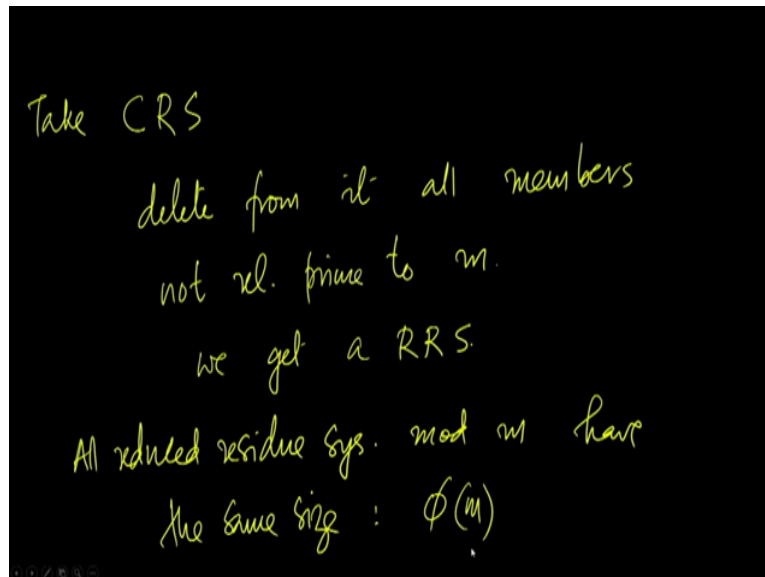 Take CRS
delete from it all members
not rel. prime to m.
we get a RRS.
All reduced residue sys. mod m have
the same size : ϕ(m)